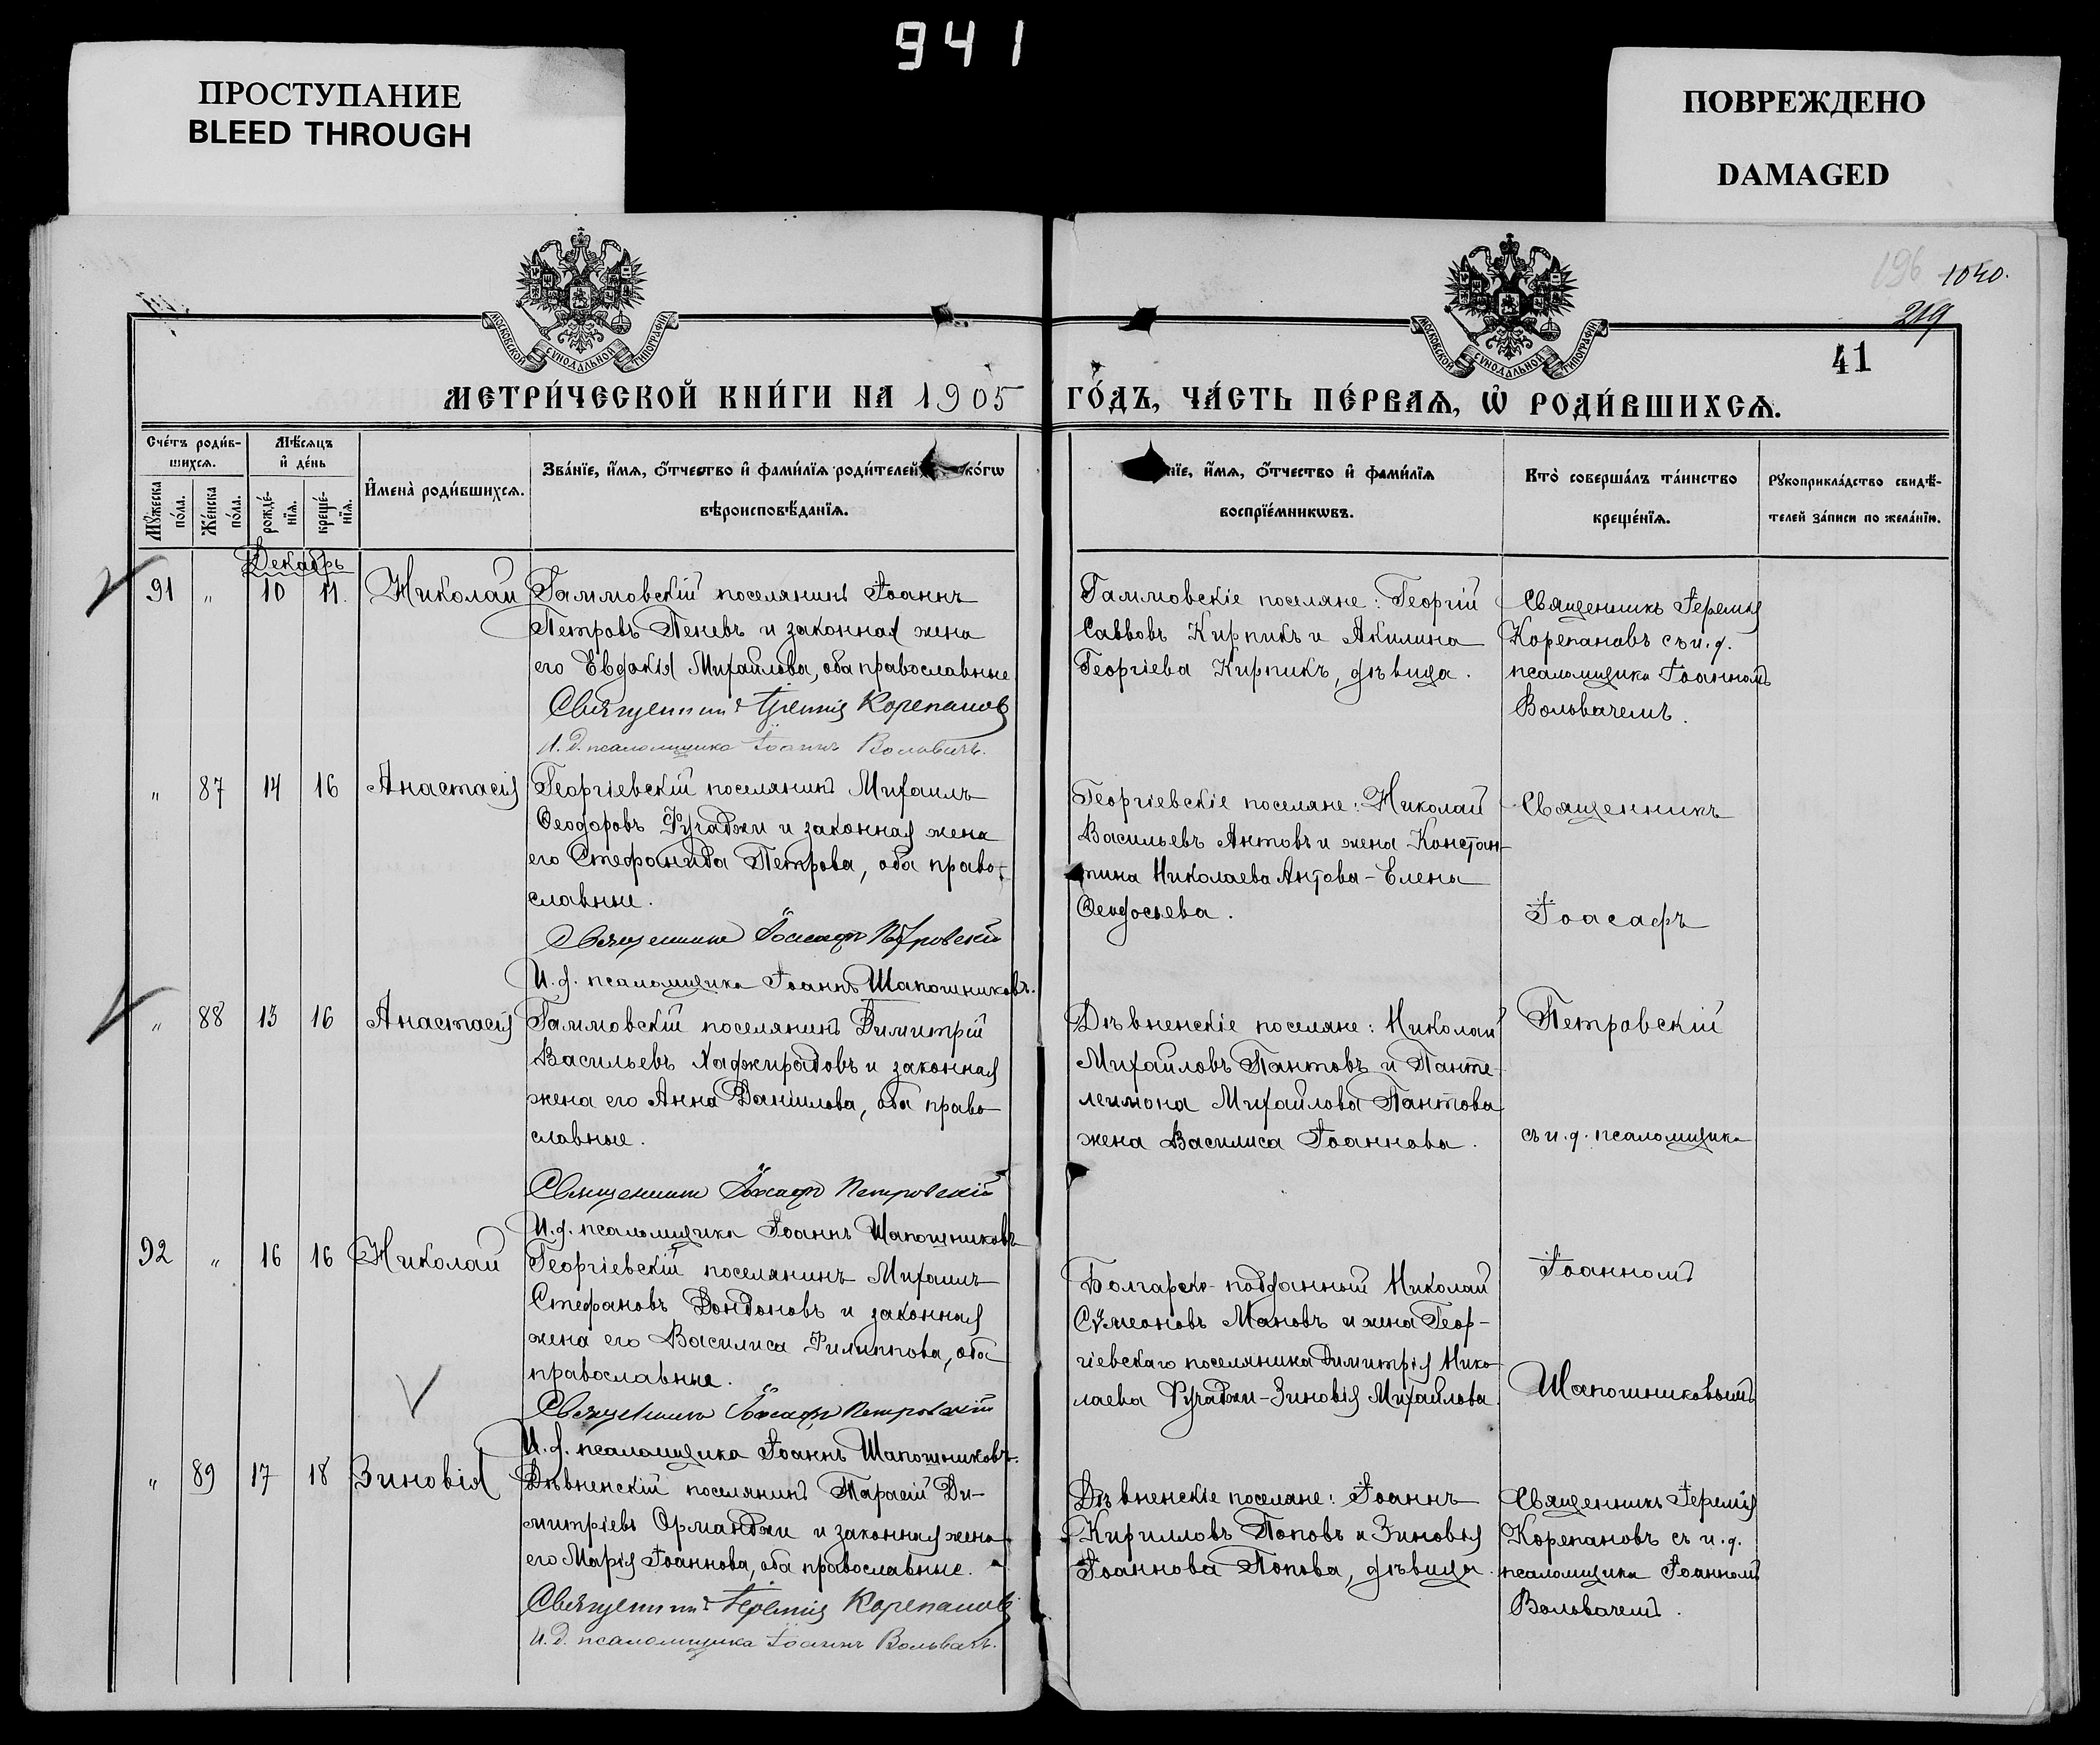 941
ПРОСТУПАНИЕ
BLEED THROUGH
ПОВРЕЖДЕНО
DAMAGED
МОСКОВСКОЙ СУНОДАЛЬНОЙ ТИПОГРАФІИ
МОСКОВСКОЙ СУНОДАЛЬНОЙ ТИПОГРАФІИ
196 1040.
219
41
МЕТРИ́ЧЕСКОЙ КНИ́ГИ НА 1905
ГО́ДЪ, ЧА́СТЬ ПЕ́РВАѦ, Ѡ҆ РОДИ́ВШИХСѦ.
Сче́тъ роди́в-
шихсѧ.
Мѣ́сѧцъ
и҆ де́нь
Мꙋ́жеска по́ла.
Же́нска по́ла.
рожде́-
нїѧ.
креще́-
нїѧ.
И҆мена̀ роди́вшихсѧ.
Зва́нїе, и҆́мѧ, ѻ҆́тчество и҆ фами́лїѧ роди́телей, ко́гѡ
вѣроисповѣ́данїѧ.
нїе, и҆́мѧ, ѻ҆́тчество и҆ фами́лїѧ
воспрїе́мникѡвъ.
Кто̀ соверша́лъ та́инство
креще́нїѧ.
Рꙋкоприкла́дство свидѣ́-
телей за́писи по жела́нїю.
Декабрь
91 " 10 11. Николай
Гаммовскій поселянинъ Іоаннъ
Петровъ Пеневъ и законная жена
его Евдокія Михайлова, оба православные
Священникъ Іеремія Корепановъ
И. д. псаломщика Іоаннъ Вольвачъ.
Гаммовскіе поселяне: Георгій
Савовъ Кирпикъ и Акилина
Георгіева Кирпикъ, дѣвица.
Священникъ Іеремія
Корепановъ съ и. д.
псаломщика Іоанномъ
Вольвачемъ.
" 87 14 16 Анастасія
Георгіевскій поселянинъ Михаилъ
Ѳеодоровъ Фучаджи и законная жена
его Стефанида Петрова, оба право-
славные.
Священникъ Іоасафъ Петровскій
И. д. псаломщика Іоаннъ Шапошниковъ.
Георгіевскіе поселяне: Николай
Васильевъ Антовъ и жена Констан-
тина Николаева Антова - Елена
Ѳеодосьева.
Священникъ
Іоасафъ
" 88 15 16 Анастасія
Гаммовскій поселянинъ Димитрій
Васильевъ Хаджирадовъ и законная
жена его Анна Даніилова, оба право-
славные.
Священникъ Іоасафъ Петровскій
И. д. псаломщика Іоаннъ Шапошниковъ
Дѣвненскіе поселяне: Николай
Михайловъ Пантовъ и Панте-
леимона Михайлова Пантова
жена Василиса Іоаннова.
Петровскій
съ и. д. псаломщика
92 " 16 16 Николай
Георгіевскій поселянинъ Михаилъ
Стефановъ Дондоновъ и законная
жена его Василиса Филиппова, оба
православные.
Священникъ Іоасафъ Петровскій
И. д. псаломщика Іоаннъ Шапошниковъ.
Болгарско-подданный Николай
Сѵмеоновъ Мановъ и жена Геор-
гіевскаго поселянина Димитрія Нико-
лаева Фучаджи - Зиновія Михайлова.
Іоанномъ
Шапошниковымъ
" 89 17 18 Зиновія
Дѣвненскій поселянинъ Тарасій Ди-
митріевъ Орманджи и законная жена
его Марія Іоаннова, оба православные.
Священникъ Іеремія Корепановъ
И. д. псаломщика Іоаннъ Вольвачъ.
Дѣвненскіе поселяне: Іоаннъ
Кирилловъ Поповъ и Зиновія
Іоаннова Попова, дѣвица.
Священникъ Іеремія
Корепановъ съ и. д.
псаломщика Іоанномъ
Вольвачемъ.